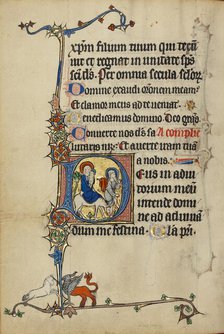 xp̄m filium tuum qui tecū
uiuit et regnat in unitate sp̄s
sc̄i d̄s. Per omnia secula seculoꝝ
Domine exaudi orōnem meam
Et clamor meus ad te ueniat.
Benedicamus domino Deo gr̄as
Conuerte nos d̄s sa A complie
lutaris nr̄. Et auerte iram tuā
a nobis.
Deus in adiu
torium meū
intende domi
ne ad adiuuan
dum me festina